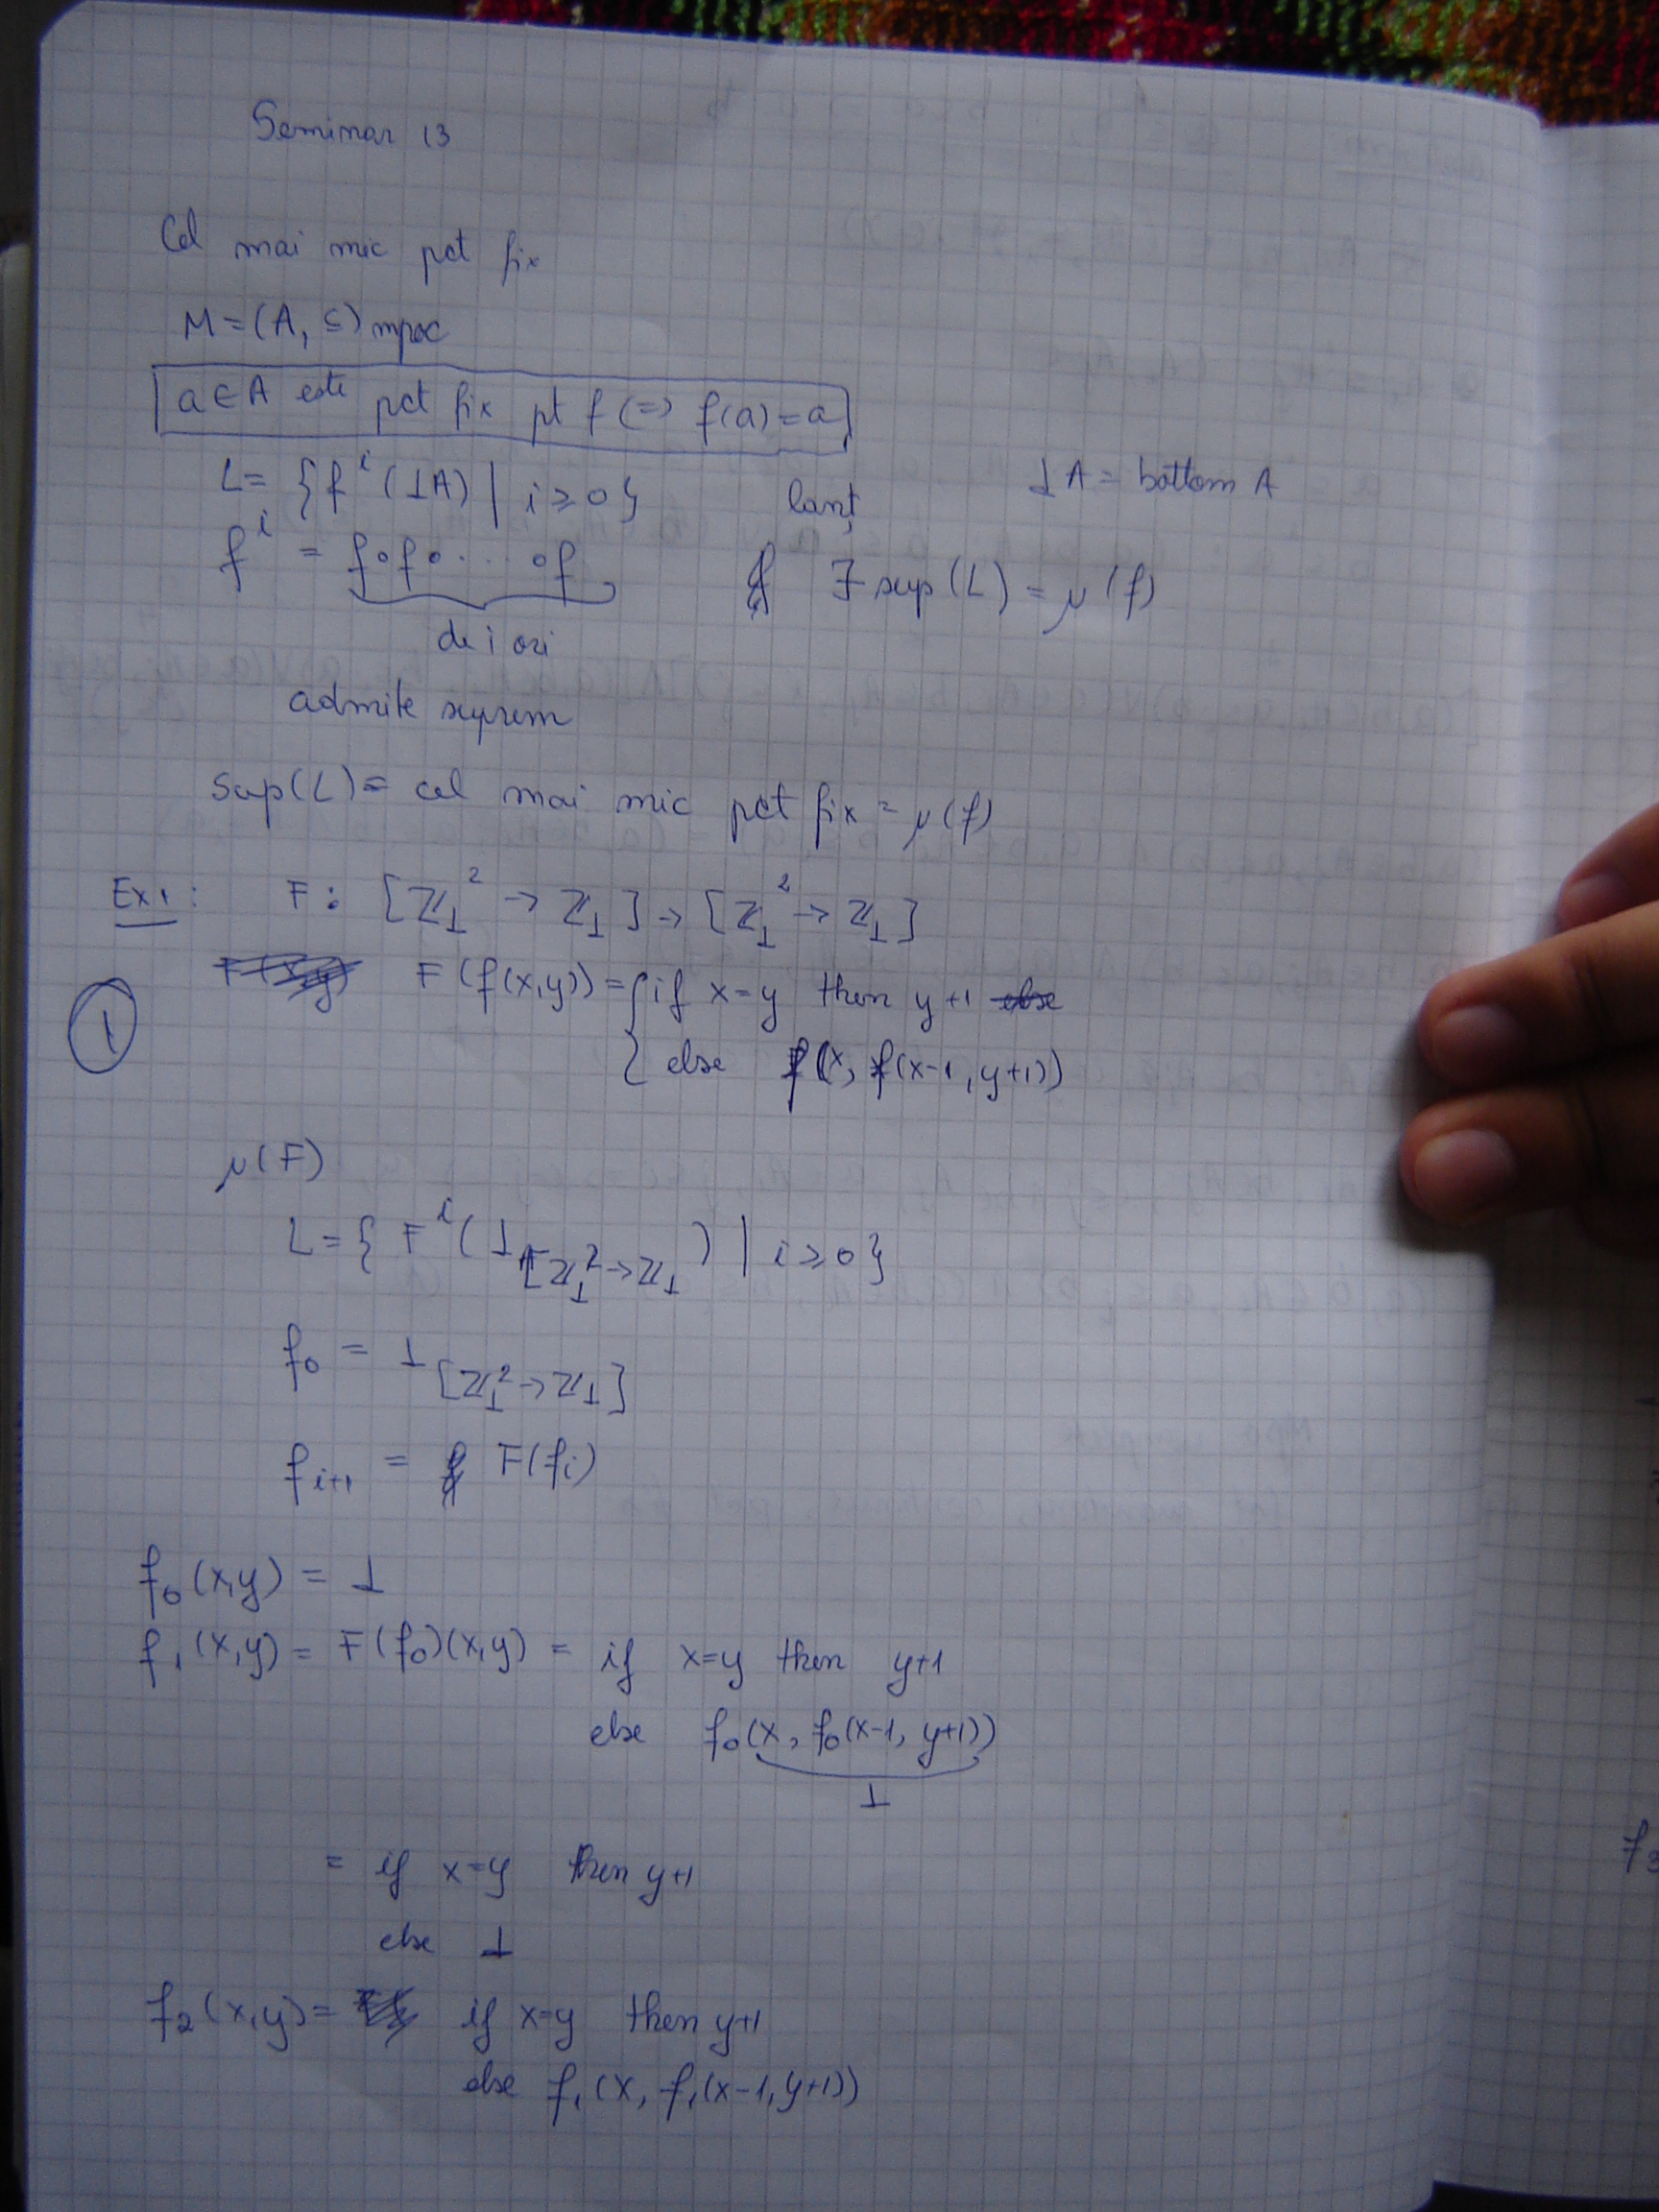 Seminar 13
Cel mai mic pct fix
M = (A, ≤) mpoc
a ∈ A este pct fix pt f (=> f(a) = a
L = { f^i (⊥A) | i ≥ 0 } lanț ⊥A = bottom A
f^i = f∘f∘...∘f ∃ sup(L) = μ(f)
de i ori
admite suprem
Sup(L) = cel mai mic pct fix = μ(f)
Ex1: F: [ℤ⊥² → ℤ⊥] → [ℤ⊥² → ℤ⊥]
① F(f(x,y)) = { if x=y then y+1 else
{ else f(x, f(x-1, y+1))
μ(F)
L = { F^i (⊥[ℤ⊥² → ℤ⊥) | i ≥ 0 }
f₀ = ⊥[ℤ⊥² → ℤ⊥]
f_{i+1} = F(f_i)
f₀(x,y) = ⊥
f₁(x,y) = F(f₀)(x,y) = if x=y then y+1
else f₀(x, f₀(x-1, y+1))
⊥
= if x=y then y+1
else ⊥
f₂(x,y) = if x=y then y+1
else f₁(x, f₁(x-1, y+1))
f₃